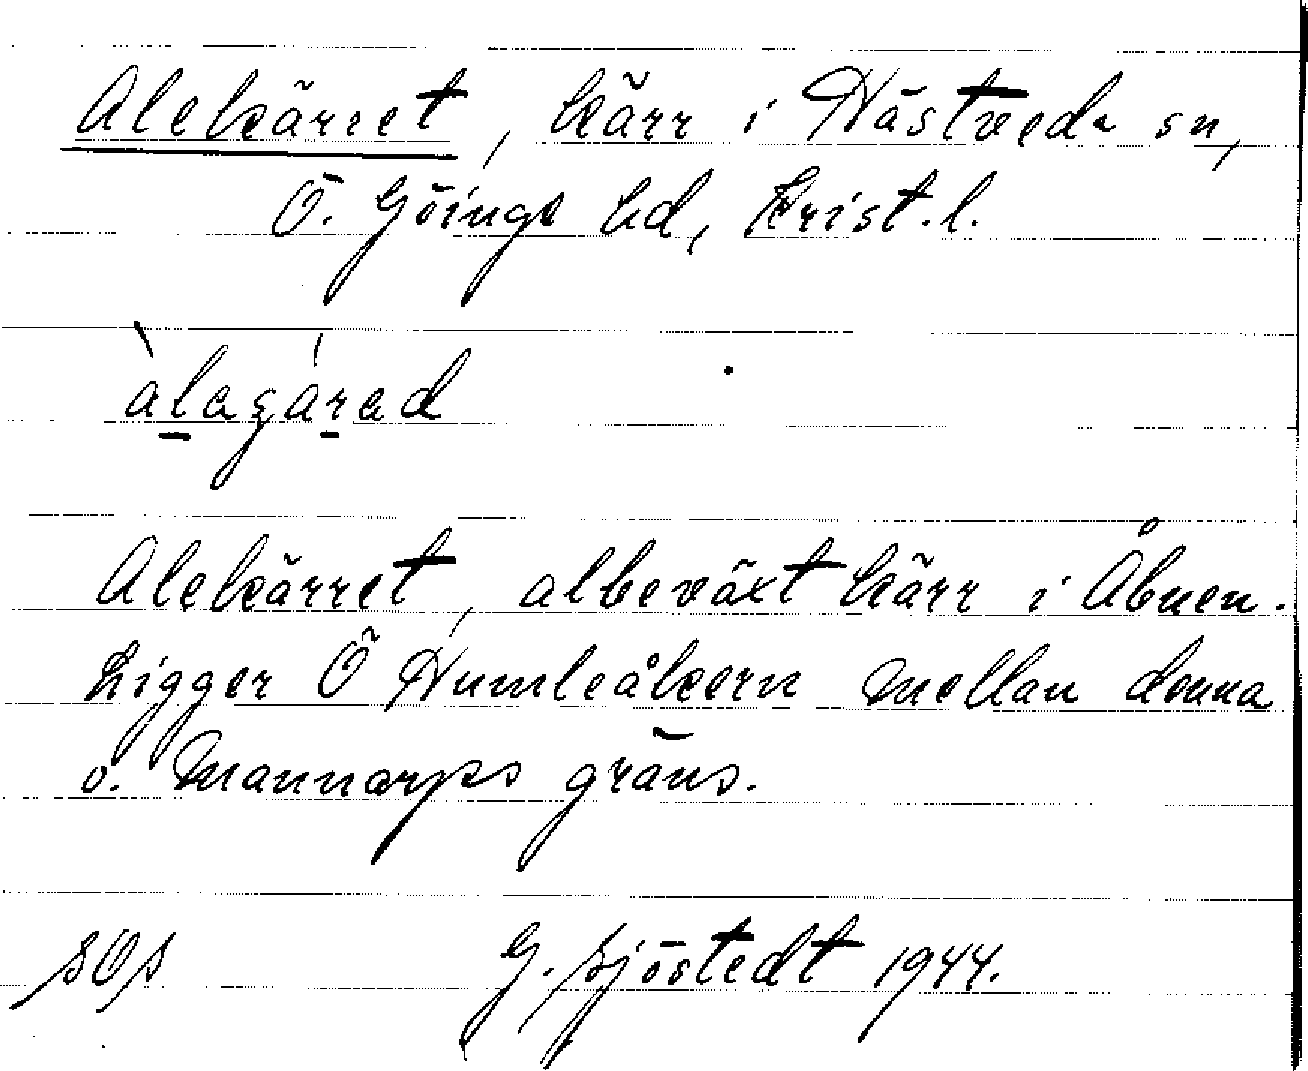 Alekärret, kärr i Hästveda sn,
Ö. Göinge hd, Krist. l.
àlagárad
Alekärret, albeväxt kärr i Åbuen.
Ligger Ö Humleåkern mellan denna
o. Mannarps gräns.
SOs G. Sjöstedt 1944.